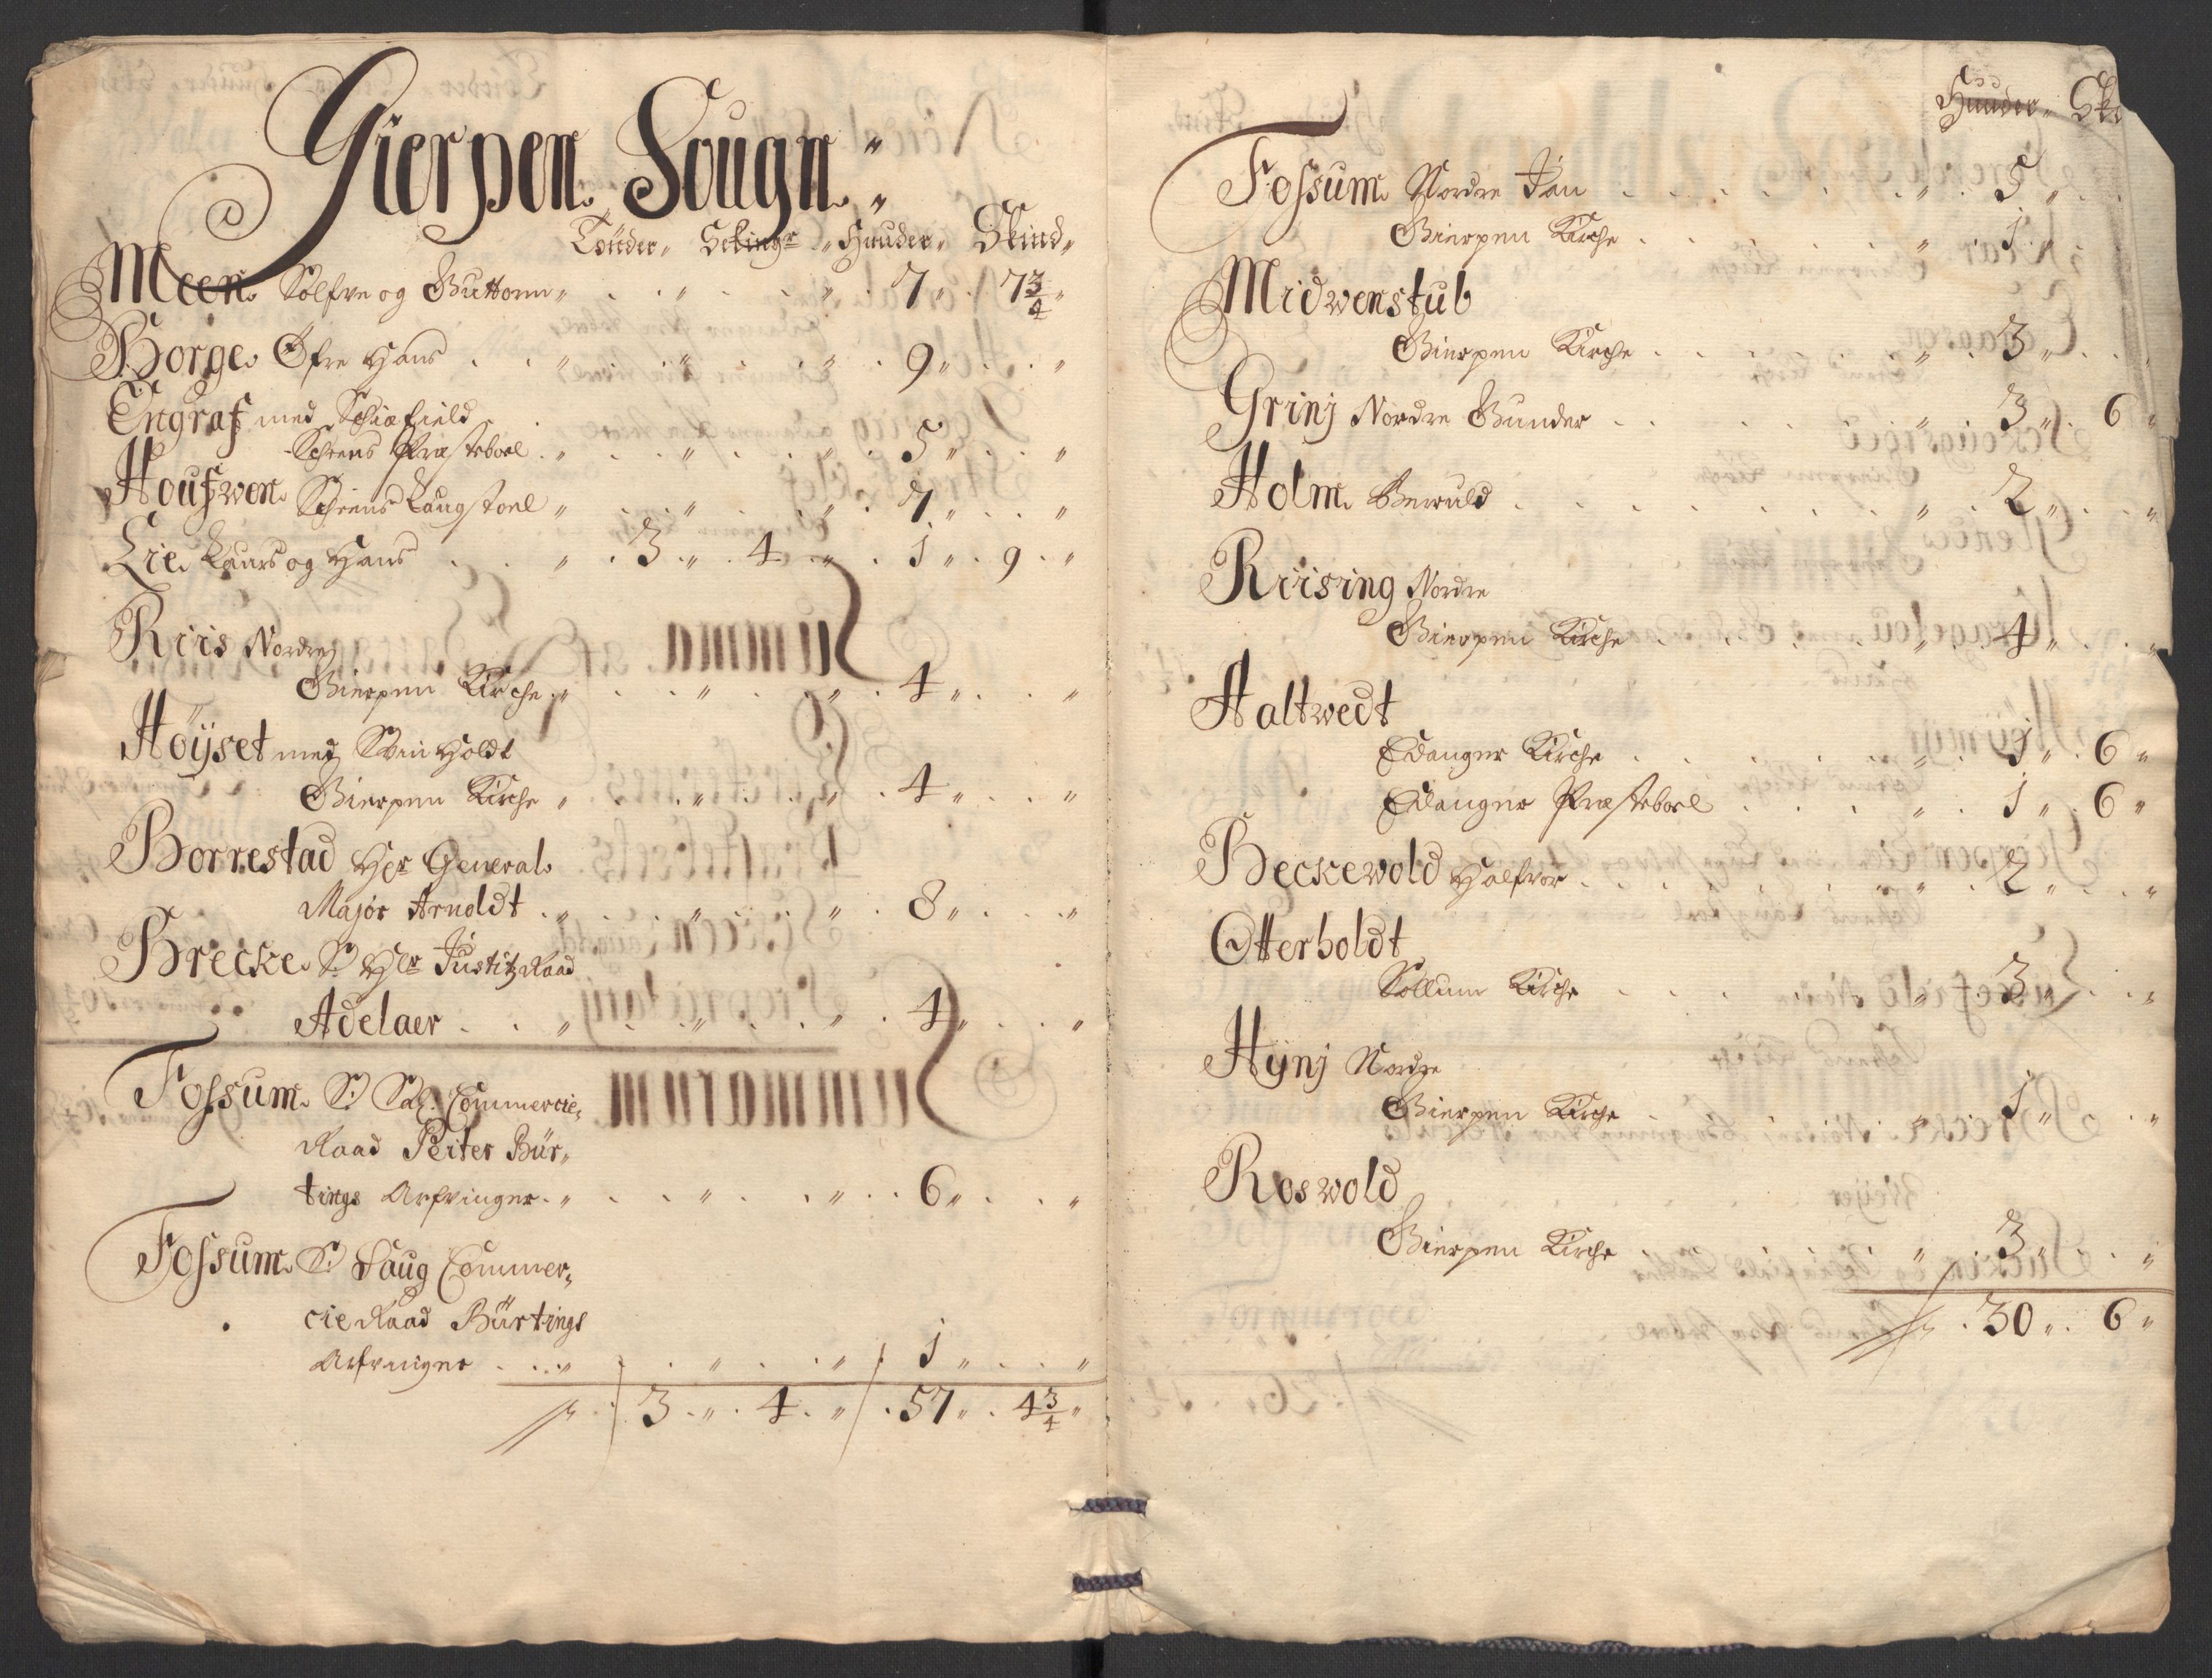 Gierpen Sougn
Tønder Setingr Huuder Skind
Meen Solfve og Guttorm 7 7 3/4
Borge Øfre Hans 9
Engraf med Schiefield
Schiens Præsteboel 5
Houfwen Schiens Laugstoel 7
Lie Laurs og Hans 3 4 1 9
Riis Nordre
Gierpen Kirche 4
Høyset med Svinholdt
Gierpen Kirche 4
Borrestad Her General
Major Arnoldt 8
Brecke S: Her Justitz Raad
Adelaer 4
Fossum S: Sal: Commercie
Raad Peiter Bür
tings Arfvinger 6
Fossum S: Saug Commer
cie Raad Bürtings
Arfvinger 1
3 4 57 4 3/4
Huuder Ski
Fossum Nordre Jan 5
Gierpen Kirche 1
Midwenstub
Gierpen Kirche 3
Grinj Nordre Gunder 3 6
Holm 2
Riising Nordre
Gierpen Kirche 4
Haltwedt
Edanger Kirche 1 6
Edanger Præsteboel 1 6
Beckewold Halfvor 2
Otterholdt
Sollum Kirche 3
Hynj Nordre
Gierpen Kirche 1
Roswold
Gierpen Kirche 3
30 6